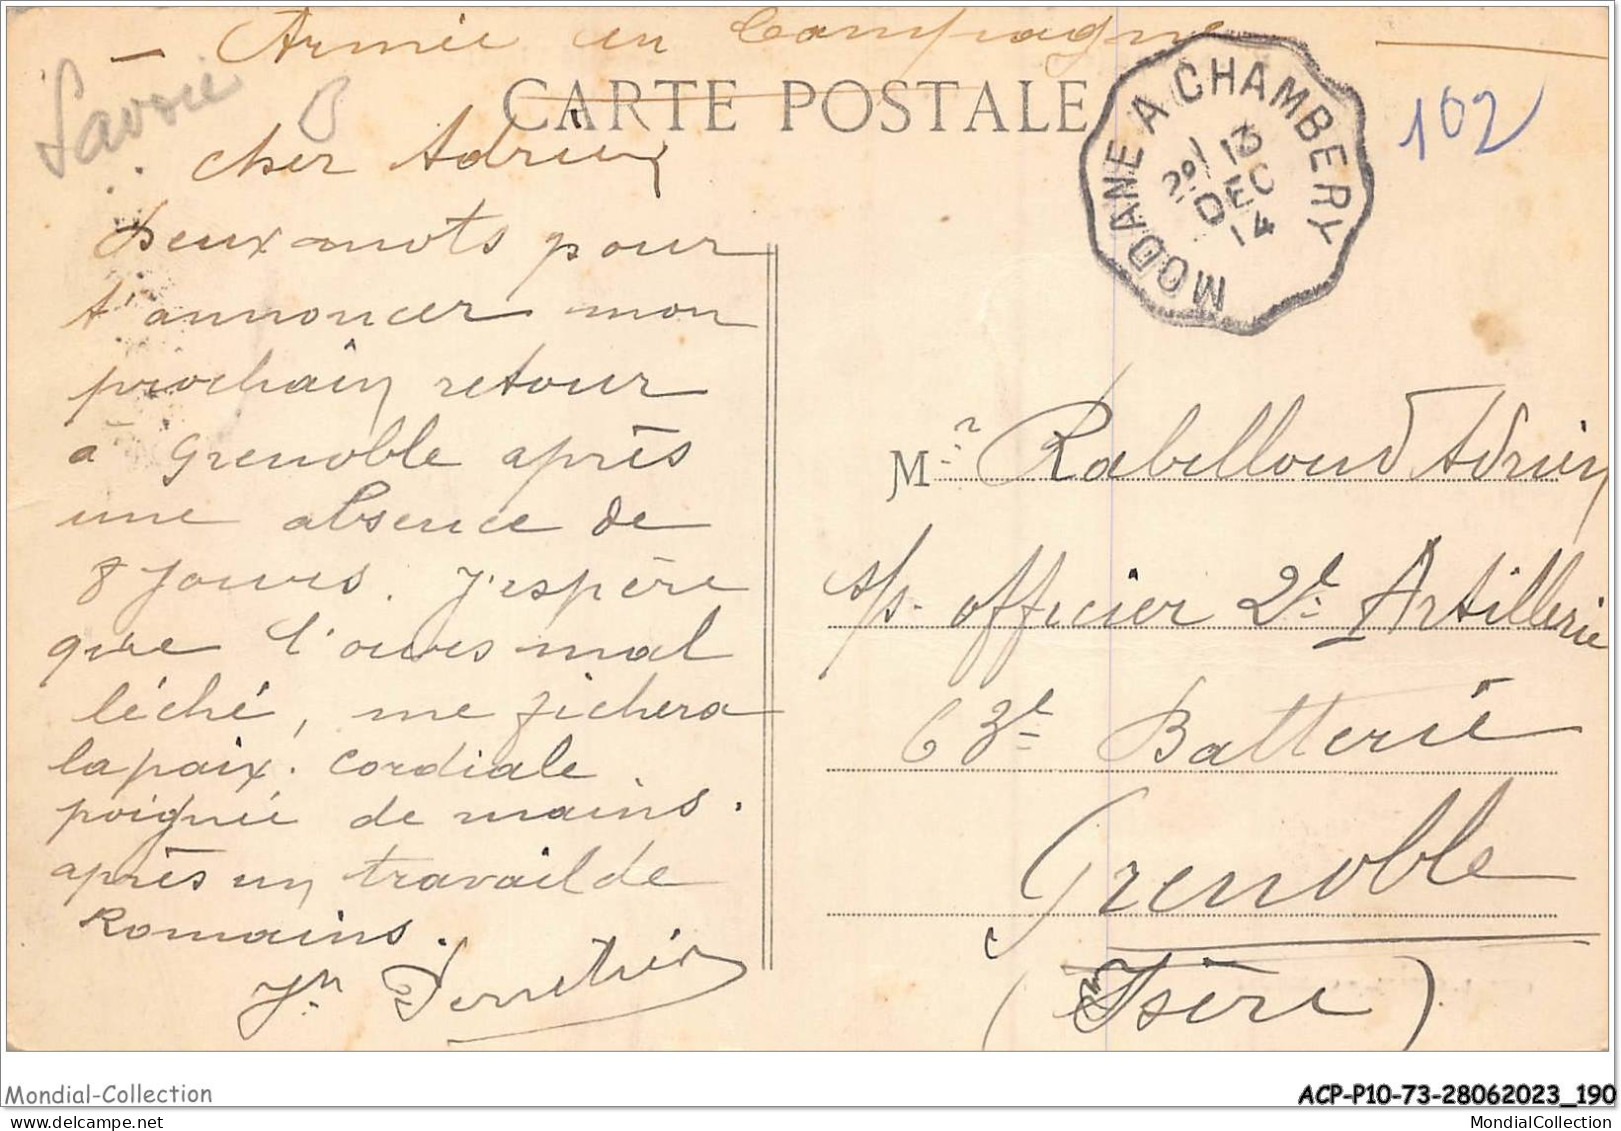 Armée en Campagne
Savoie
B
CARTE POSTALE
MODANE A CHAMBERY
2º/ 13
DEC
14
102
cher Adrien
Deux mots pour
t'annoncer mon
prochain retour
à Grenoble après
une absence de
8 jours. J'espère
que l'ours mal
léché, me fichera
la paix. Cordiale
poignée de mains.
après un travail de
Romains.
Jn
Mr Rabilloud Adrien
s/s. officier 2e Artillerie
63e Batterie
Grenoble
(Isère)
Mondial-Collection
ACP-P10-73-28062023_190
www.delcampe.net
MondialCollection